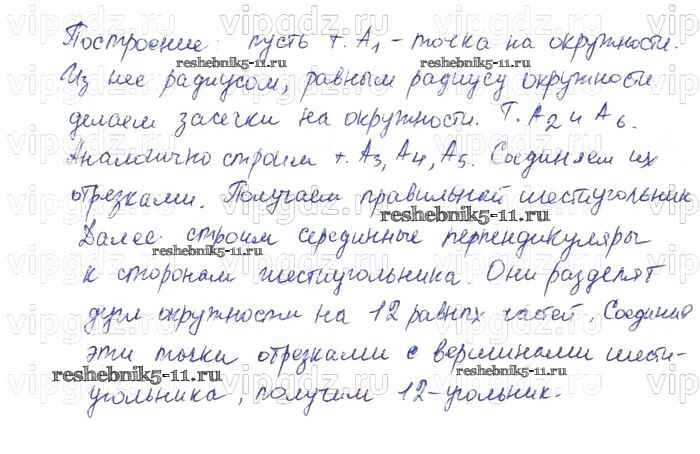 Построение: пусть т. A₁ - точка на окружности.
Из нее радиусом, равным радиусу окружности
делаем засечки на окружности. Т. A₂ и A₆.
Аналогично строим т. A₃, A₄, A₅. Соединяем их
отрезками. Получаем правильный шестиугольник
Далее строим серединные перпендикуляры
к сторонам шестиугольника. Они разделят
дуги окружности на 12 равных частей. Соединив
эти точки отрезками с вершинами шести-
угольника, получим 12-угольник.
reshebnik5-11.ru
reshebnik5-11.ru
reshebnik5-11.ru
reshebnik5-11.ru
reshebnik5-11.ru
reshebnik5-11.ru
vipgdz.ru